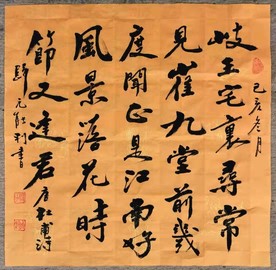 己亥冬月
岐王宅裏尋常
見崔九堂前幾
度聞正是江南好
風景落花時
節又逢君 唐杜甫詩
元 利書